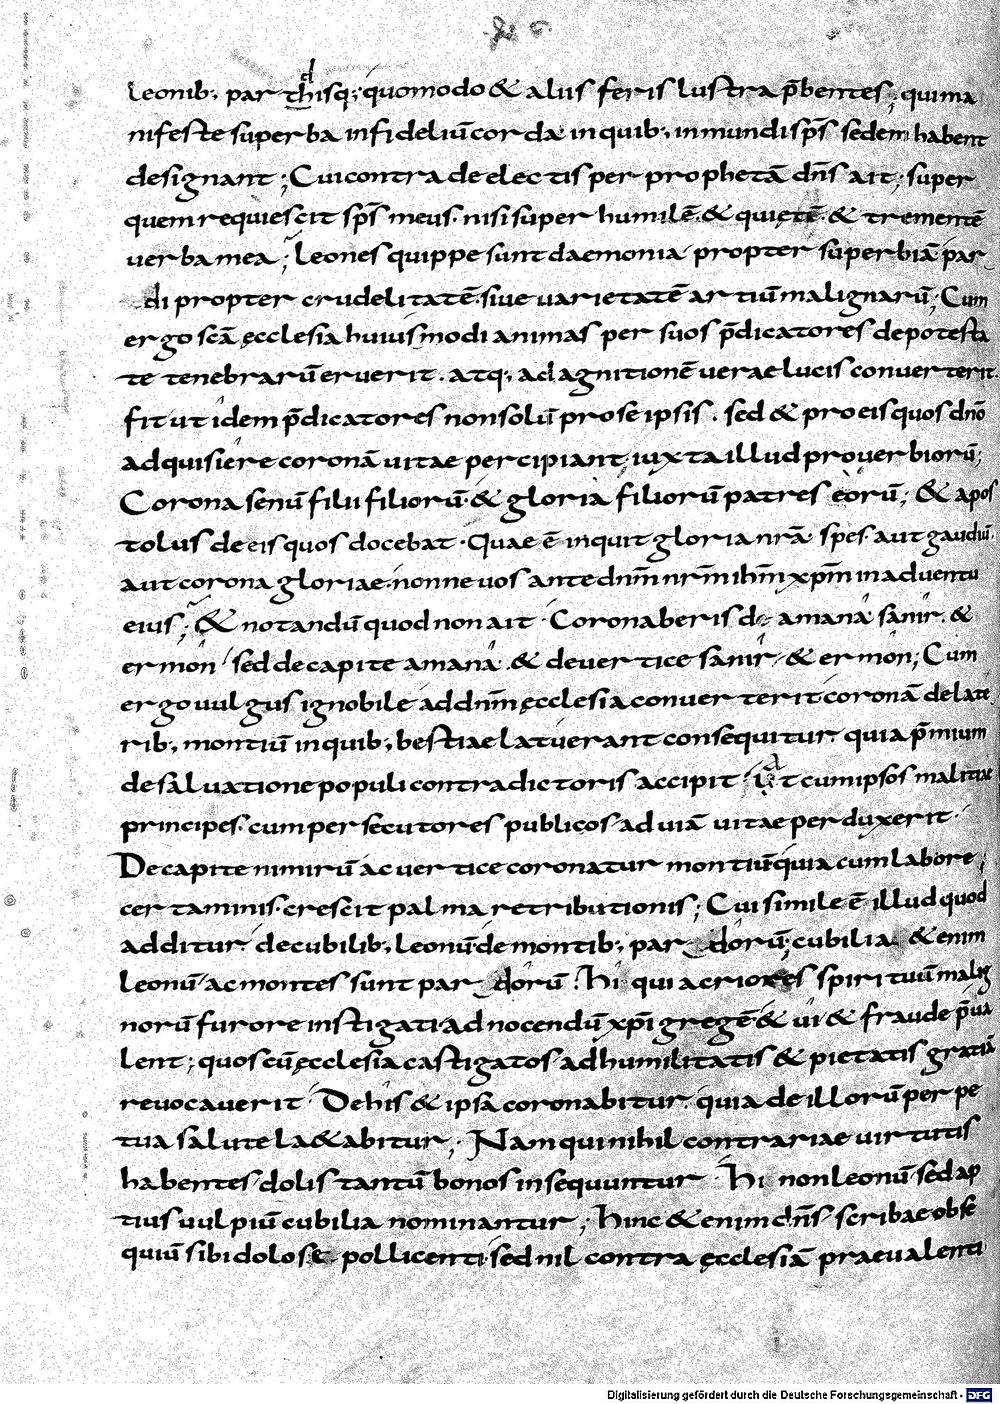 leonib; parthisq; quomodo & aliis feris lustra p̄bentes; quima
nifeste superba infideliū corda inquib; inmundi sp̄s sedem habent
designant; Cui contra de electis per prophetā dn̄s ait; super
quem requiescit sp̄s meus. nisi super humilē. & quietē. & trementē
uerba mea; leones quippe sunt daemonia propter superbiā par
di propter crudelitatē. siue uarietatē artiū malignarū; Cum
ergo scā ęcclesia huiusmodi animas per suos p̄dicatores depotesta
te tenebrarū eruerit. atq; ad agnitionē uerae lucis conuerterit.
fit ut idem p̄dicatores non solū pro se ipsis. sed & pro eis quos dn̄o
adquisiere coronā uitae percipiant; iuxta illud prouerbiorū;
Corona senū filii filiorū. & gloria filiorū patres eorū; & apos
tolus de eis quos docebat. Quae ē inquit gloria nr̄a spes. aut gaudiū.
aut corona gloriae. nonne uos ante dnm̄ nrm̄ ihm̄ xpm̄ in aduentu
eius; & notandū quod non ait Coronaberis de amana sanir. &
ermon sed de capite amana. & de uertice sanir & ermon; Cum
ergo uulgus ignobile ad dnm̄ ęcclesia conuerterit coronā de late
rib; montiū inquib; bestiae latuerant consequitur quia p̄mium
de saluatione populi contradictoris accipit. Ut cum ipsos malitiae
principes. cum persecutores publicos ad uiā uitae perduxerit.
De capite nimirū ac uertice coronatur montiū quia cum labore
certaminis. crescit palma retributionis; Cui simile ē illud quod
additur. de cubilib; leonū de montib; pardorū; cubilia &enim
leonū ac montes sunt pardorū. hi qui acriores spirituū malig
norū furore instigati ad nocendū xp̄i gregē & ui & fraude p̄ua
lent; quos cū ęcclesia castigatos ad humilitatis & pietatis gratiā
reuocauerit De his & ipsa coronabitur. quia de illorū perpe
tua salute la&abitur; Nam qui nihil contrariae uirtutis
habentes dolis tantū bonos insequuntur hi non leonū sed ap
tius uulpiū cubilia nominantur; hinc &enim dn̄s scribae obse
quiū sibi dolose pollicenti. sed nil contra ęcclesiā praeualenti
Digitalisierung gefördert durch die Deutsche Forschungsgemeinschaft - DFG